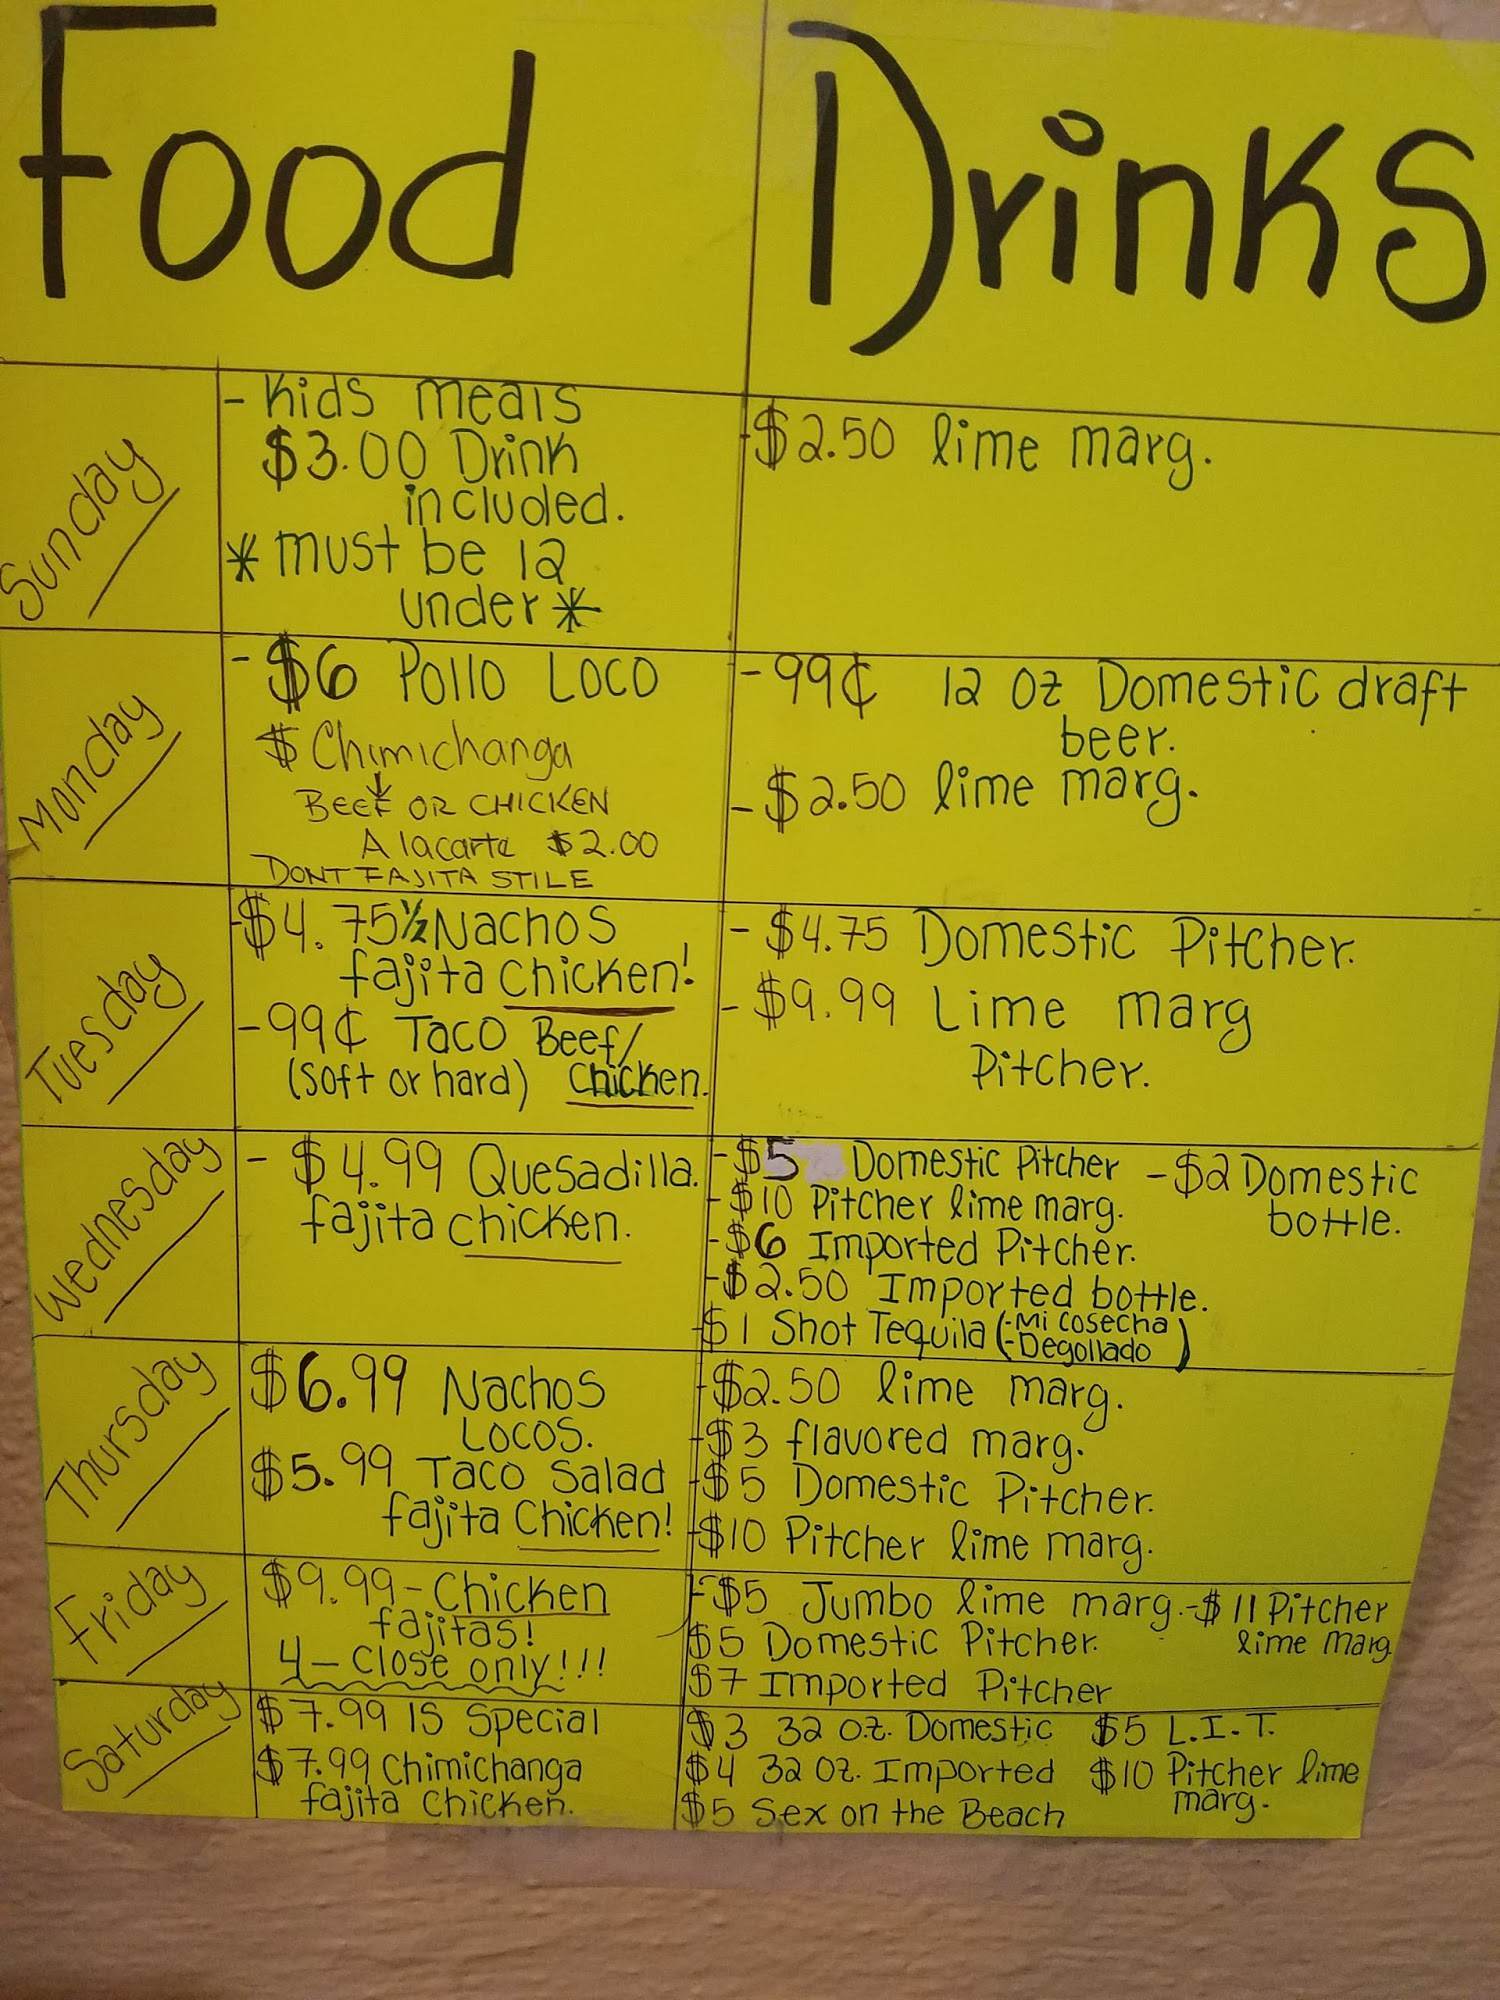 Food
Drinks
Sunday
- Kids meals
$3.00 Drink
included.
* must be 12
under *
-$2.50 lime marg.
Monday
- $6 Pollo Loco
$ Chimichanga
BEEF OR CHICKEN
A lacarte $2.00
DONT FAJITA STILE
-99¢ 12 oz Domestic draft
beer.
-$2.50 lime marg.
Tuesday
-$4.75 ½ Nachos
fajita Chicken!
-99¢ Taco Beef/
(soft or hard) Chicken.
- $4.75 Domestic Pitcher.
- $9.99 Lime marg
Pitcher.
Wednesday
- $4.99 Quesadilla.
fajita chicken.
-$5 Domestic Pitcher
-$10 Pitcher lime marg.
-$6 Imported Pitcher.
-$2.50 Imported bottle.
-$1 Shot Tequila (-Mi Cosecha
-Degollado)
-$2 Domestic
bottle.
Thursday
$6.99 Nachos
Locos.
$5.99 Taco Salad
fajita Chicken!
-$2.50 lime marg.
-$3 flavored marg.
-$5 Domestic Pitcher.
-$10 Pitcher lime marg.
Friday
$9.99-Chicken
fajitas!
4-Close only!!!
-$5 Jumbo lime marg.
$5 Domestic Pitcher.
$7 Imported Pitcher
-$11 Pitcher
lime marg
Saturday
$7.99 IS Special
$7.99 Chimichanga
fajita chicken.
$3 32 oz. Domestic
$4 32 oz. Imported
$5 Sex on the Beach
$5 L.I.T.
$10 Pitcher lime
marg.